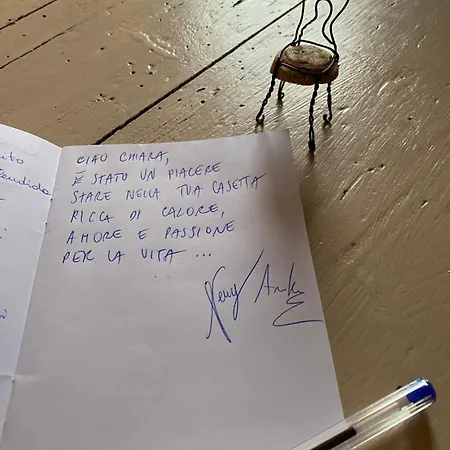 CIAO CHIARA,
È STATO UN PIACERE
STARE NELLA TUA CASETTA
RICCA DI CALORE,
AMORE E PASSIONE
PER LA VITA ...